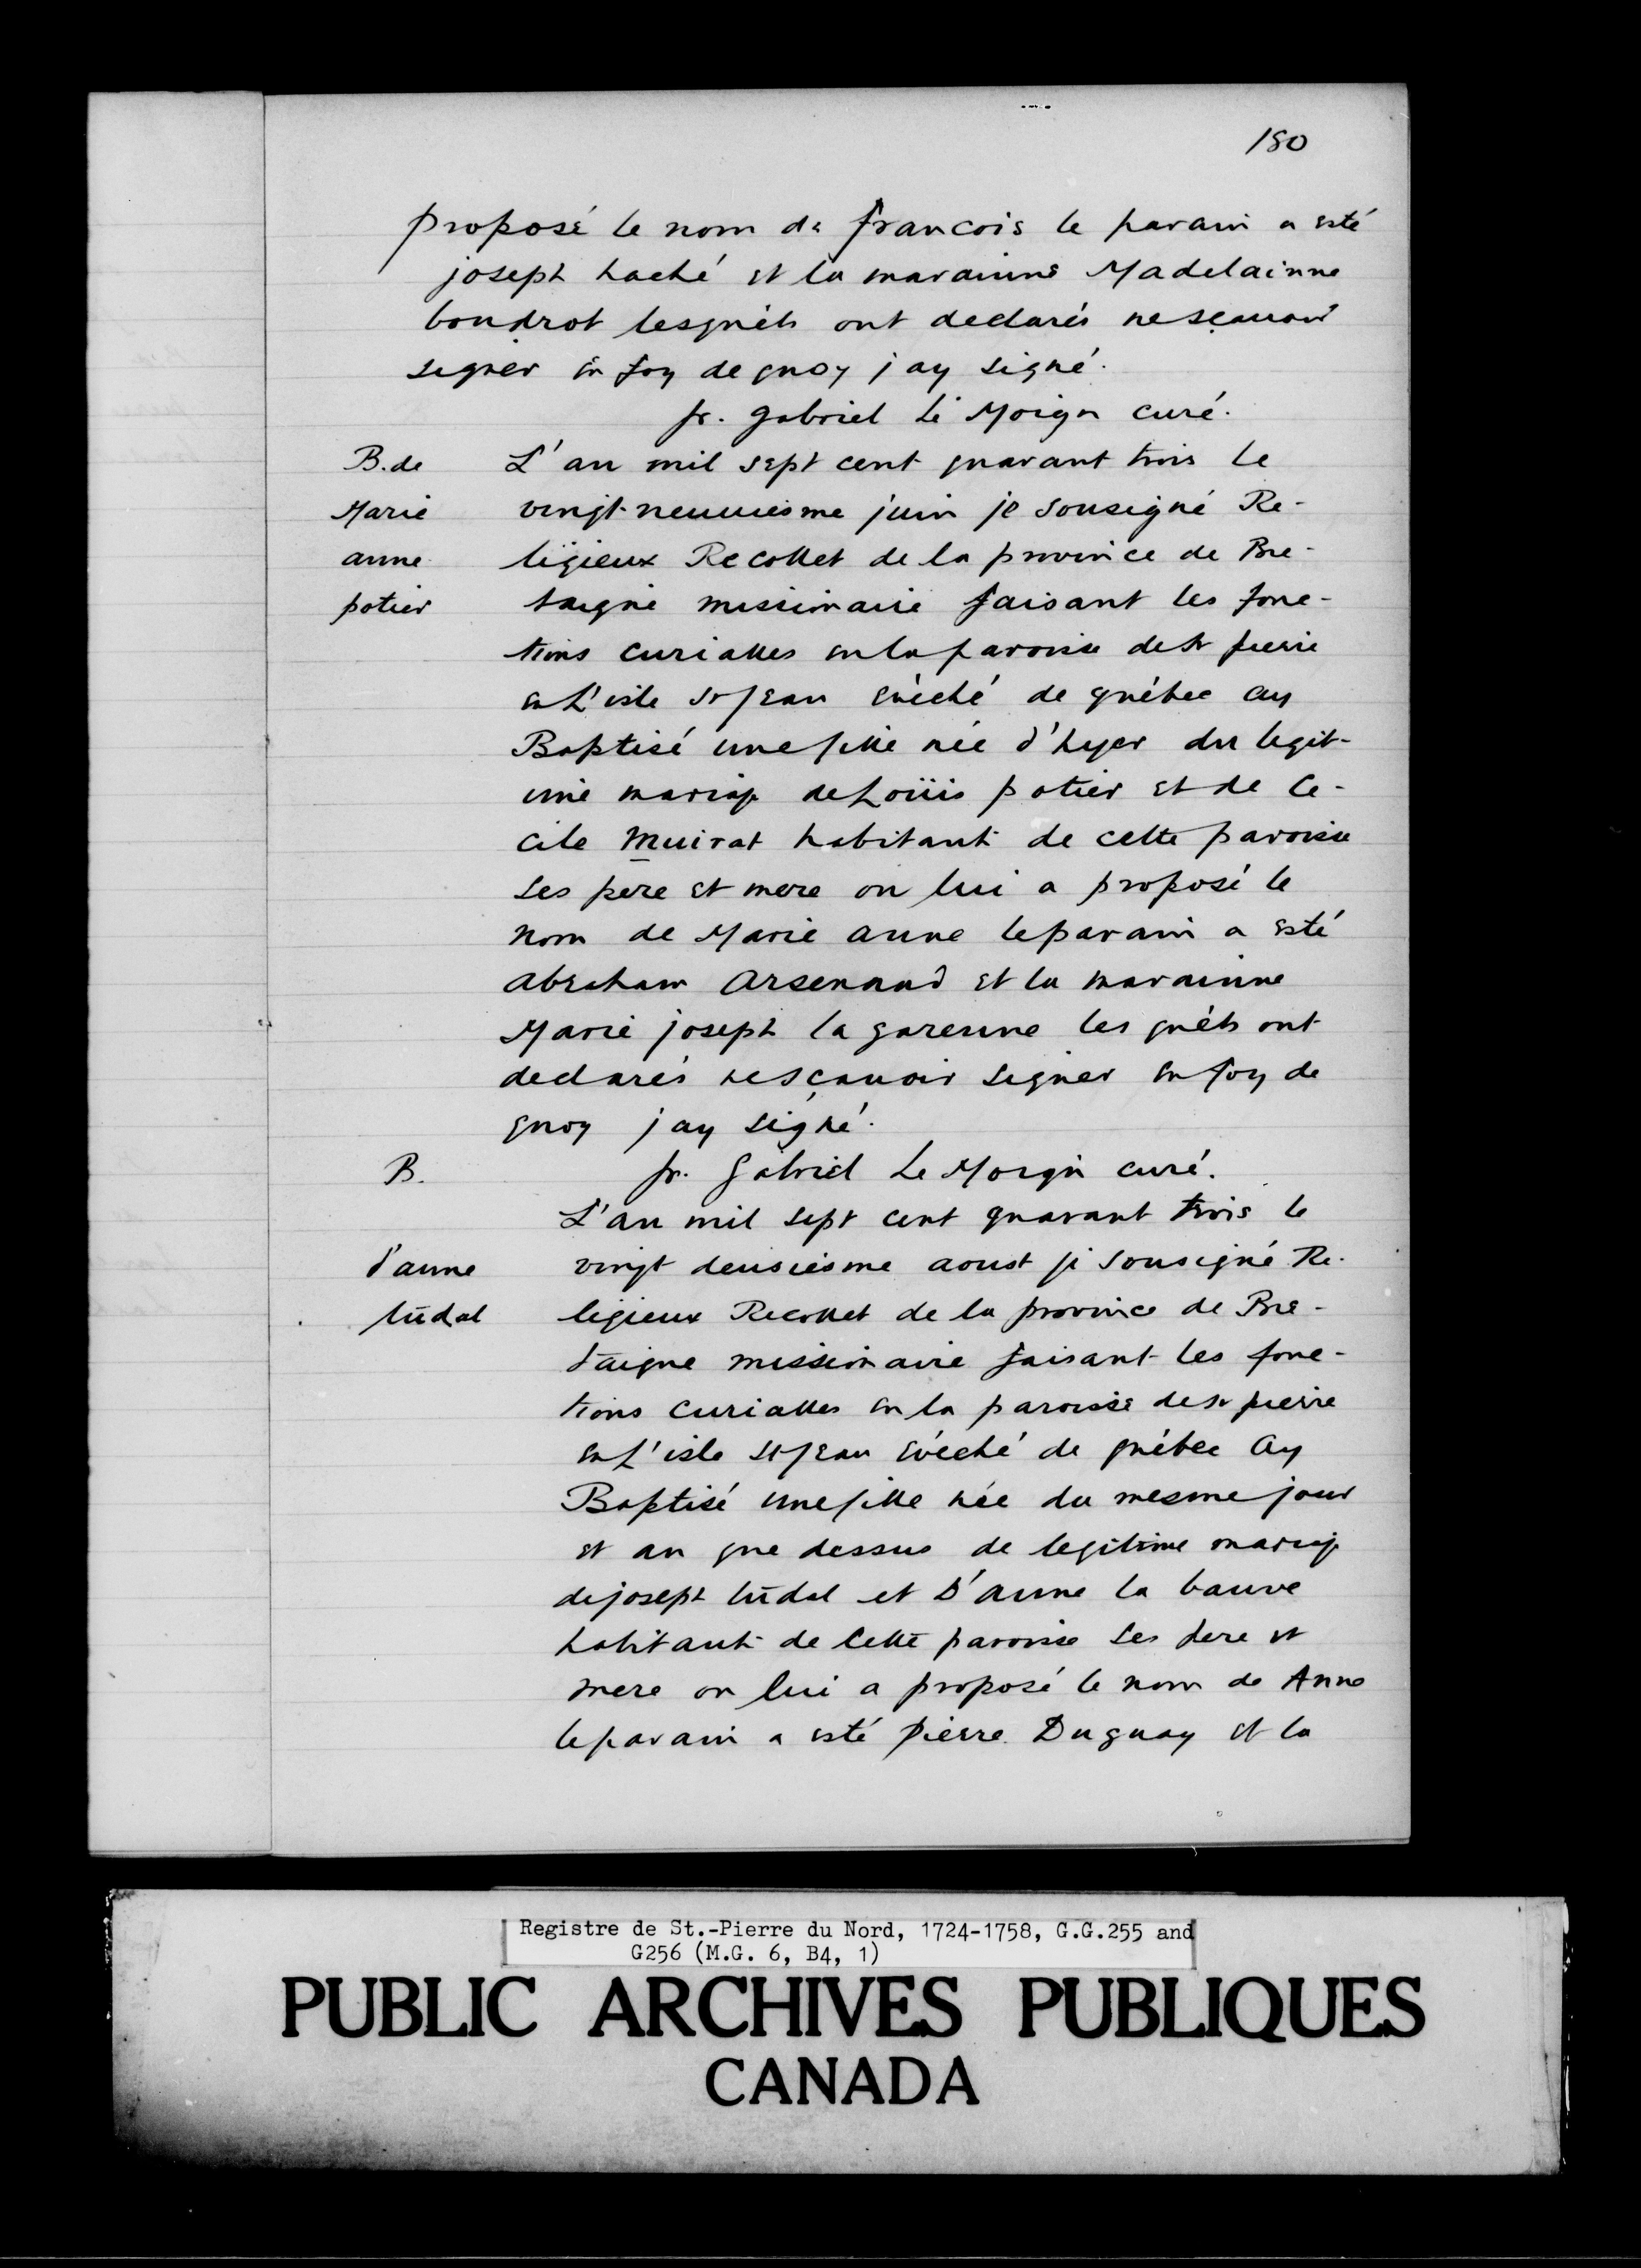 180
proposé le nom de francois le parain a esté
joseph haché et la marainne Madelainne
boudrot lesquéls ont declarés nesçauoir
signer en foy de quoy jay signé.
fr. gabriel Le Moign curé.
B. de L'an mil sept cent quarant trois le
Marie vingt-neuuiesme juin je sousigné Re-
anne ligieux Recollet de la province de Bre-
potier taigne missionaire faisant les fonc-
tions curialles en la paroisse de st pierre
en L'isle st jean évêché de québec ay
Baptisé une fille née d'hyer du legit-
ime mariage de Loüis potier et de Ce-
cile Muirat habitant de cette paroisse
ses père et mere on lui a proposé le
nom de Marie anne leparain a esté
abraham arsenaud et la marainne
Marie joseph la garenne les quéls ont
declarés nesçauoir signer en foy de
quoy jay signé.
B. fr. Gabriel Le Moign curé.
L'an mil sept cent quarant trois le
d'anne vingt deusiesme aoust je sousigné Re-
lūdal ligieux Recollet de la province de Bre-
taigne missionaire faisant les fonc-
tions curialles en la paroisse de st pierre
en L'isle st jean évêché de québec ay
Baptisé une fille née du mesme jour
et an que dessus de legitime mariage
de joseph lūdal et D'anne la bauve
habitant de cette paroisse ses pere et
mere on lui a proposé le nom de Anne
leparain a esté pierre Duguay et la
Registre de St.-Pierre du Nord, 1724-1758, G.G.255 and
G256 (M.G. 6, B4, 1)
PUBLIC ARCHIVES PUBLIQUES
CANADA